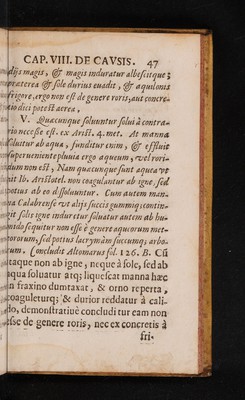 CAP. VIII. DE CAVSIS. 47
dijs magis, & magis induratur albescitque;
præterea & sole durius euadit, & aquilonis
frigore, ergo non est de genere roris, aut concre-
tio dici potest aerea.
V. Quæcunque soluuntur solui à contra-
rio necesse est. ex Arist. 4. met. At manna
diluitur ab aqua, funditur enim, & effluit
superueniente pluuia ergo aqueum, vel rori-
dum non est, Nam quæcunque sunt aquea vt
ait Ib. Aristotel. non coagulantur ab igne, sed
potius ab eo dissoluuntur. Cum autem man-
na Calabrense vt alijs succis gummiq; contin-
git solis igne induretur soluatur autem ab hu-
mido sequitur non esse è genere aquorum met-
eororum, sed potius lacrymam succumq; arbo-
reum. Concludit Altomarus fol. 126. B. Cũ
itaque non ab igne, neque à sole, sed ab
aqua soluatur atq; liquescat manna hæc
in fraxino dumtaxat, & orno reperta,
coaguleturq; & durior reddatur à cali-
do, demonstratiuè concludi tur eam non
esse de genere roris, nec ex concretis à
fri-